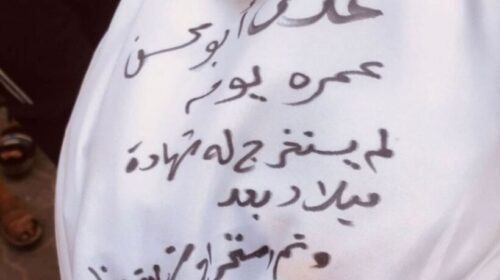 أبو محسن
عمره يوم
لم يستخرج له شهادة
ميلاد بعد
وتم استخراج